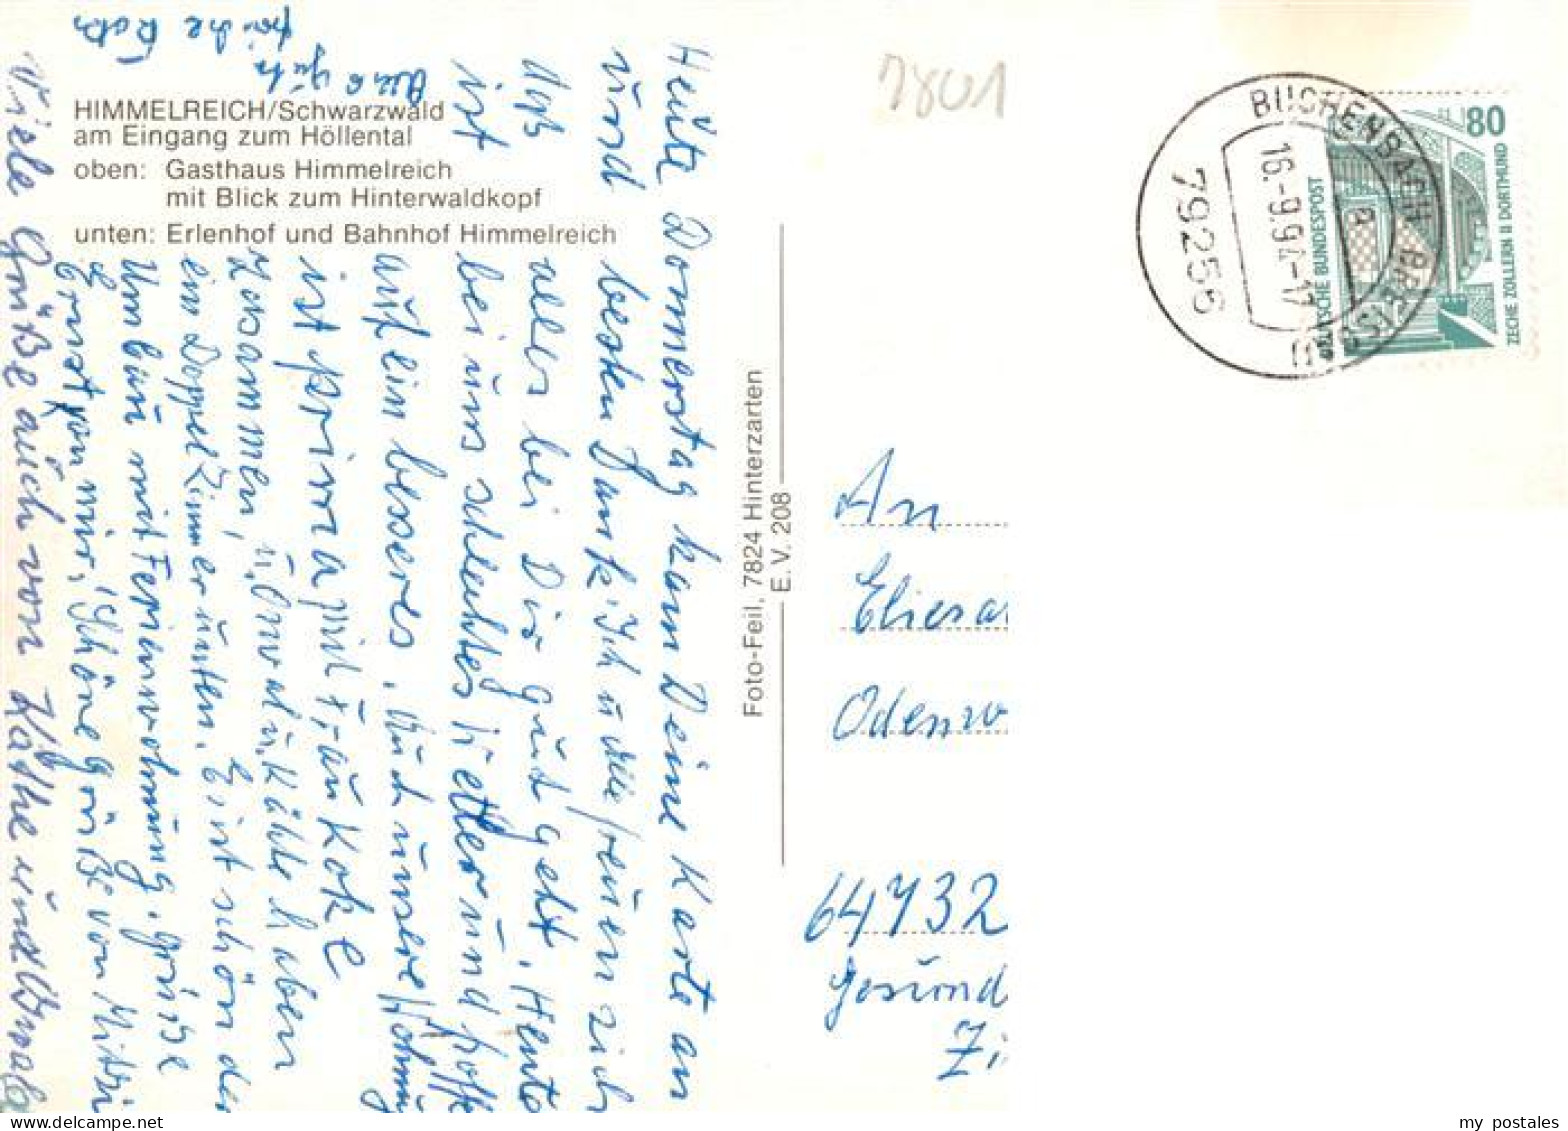 HIMMELREICH/Schwarzwald
am Eingang zum Höllental
oben: Gasthaus Himmelreich
mit Blick zum Hinterwaldkopf
unten: Erlenhof und Bahnhof Himmelreich
Heute Donnerstag kam Deine Karte an
und besten Dank. Ich u alle freuen sich
daß alles bei Dir gut geht. Heute
ist bei uns schlechtes Wetter und hoffe
auf ein besseres. Auch unsere Wohnu
ist prima mit Frau Koke
zusammen, u. Oswald u. Käthe haben
ein Doppelzimmer unten. Es ist schön der
Umbau mit Ferienwohnung. grüße
Ernst von mir, schöne Grüße von Mitzi
Viele Grüße auch von Käthe und Oswald
Foto-Feil, 7824 Hinterzarten
E. V. 208
7801
BUCHENBACH BREISGAU
a
16.-9.94-17
79256
80
DEUTSCHE BUNDESPOST
ZECHE ZOLLERN II DORTMUND
An
Odenw
64732
Gesund
Zi
my postales